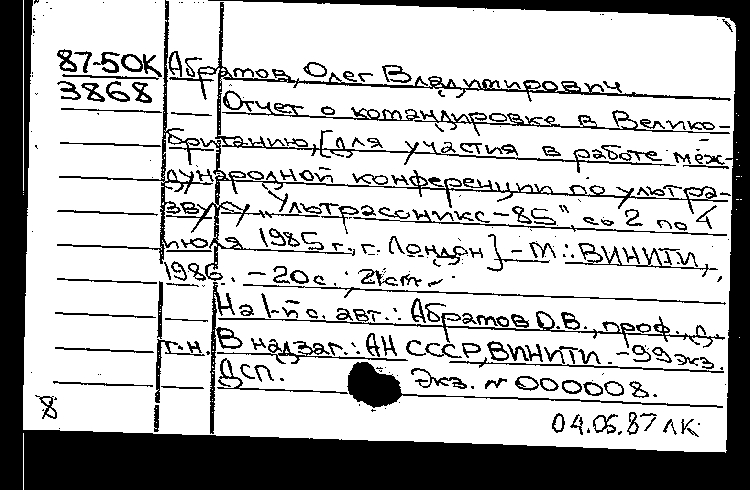 87-50К Абрамов, Олег Владимирович.
3868 Отчет о командировке в Велико-
британию, [для участия в работе меж-
дународной конференции по ультра-
звуку „Ультрасоникс-85", со 2 по 4
июля 1985 г., г. Лондон] - М.: ВИНИТИ,
1986. - 20 с.; 21 см.
На 1-й с. авт.: Абрамов О.В., проф., д.
т.н. В надзаг.: АН СССР, ВИНИТИ. - 99 экз.
ДСП. Экз. № 000008.
8 04.06.87 ЛК